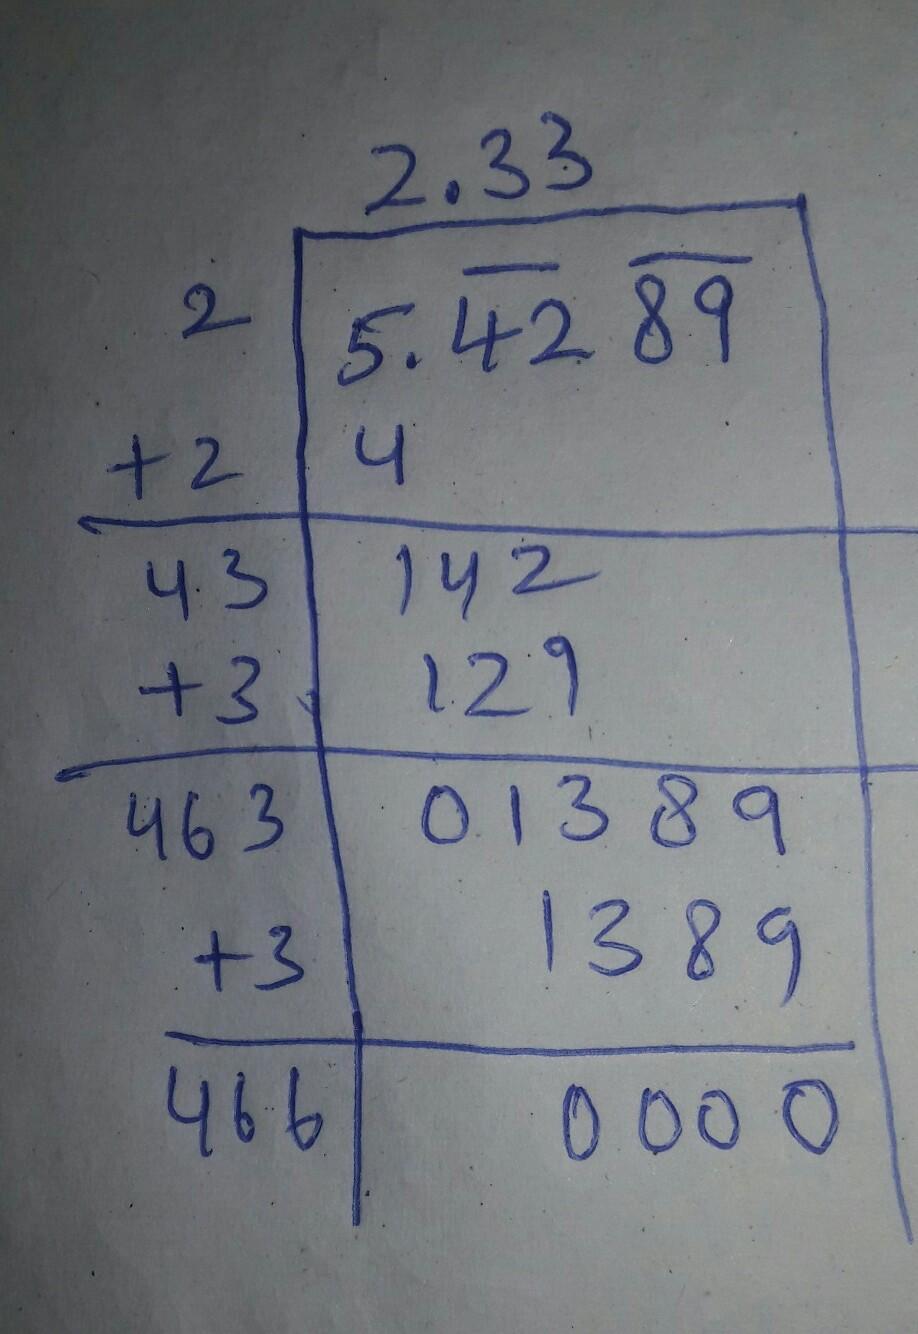 2.33
2 5.42 89
+2 4
43 142
+3 129
463 01389
+3 1389
466 0000